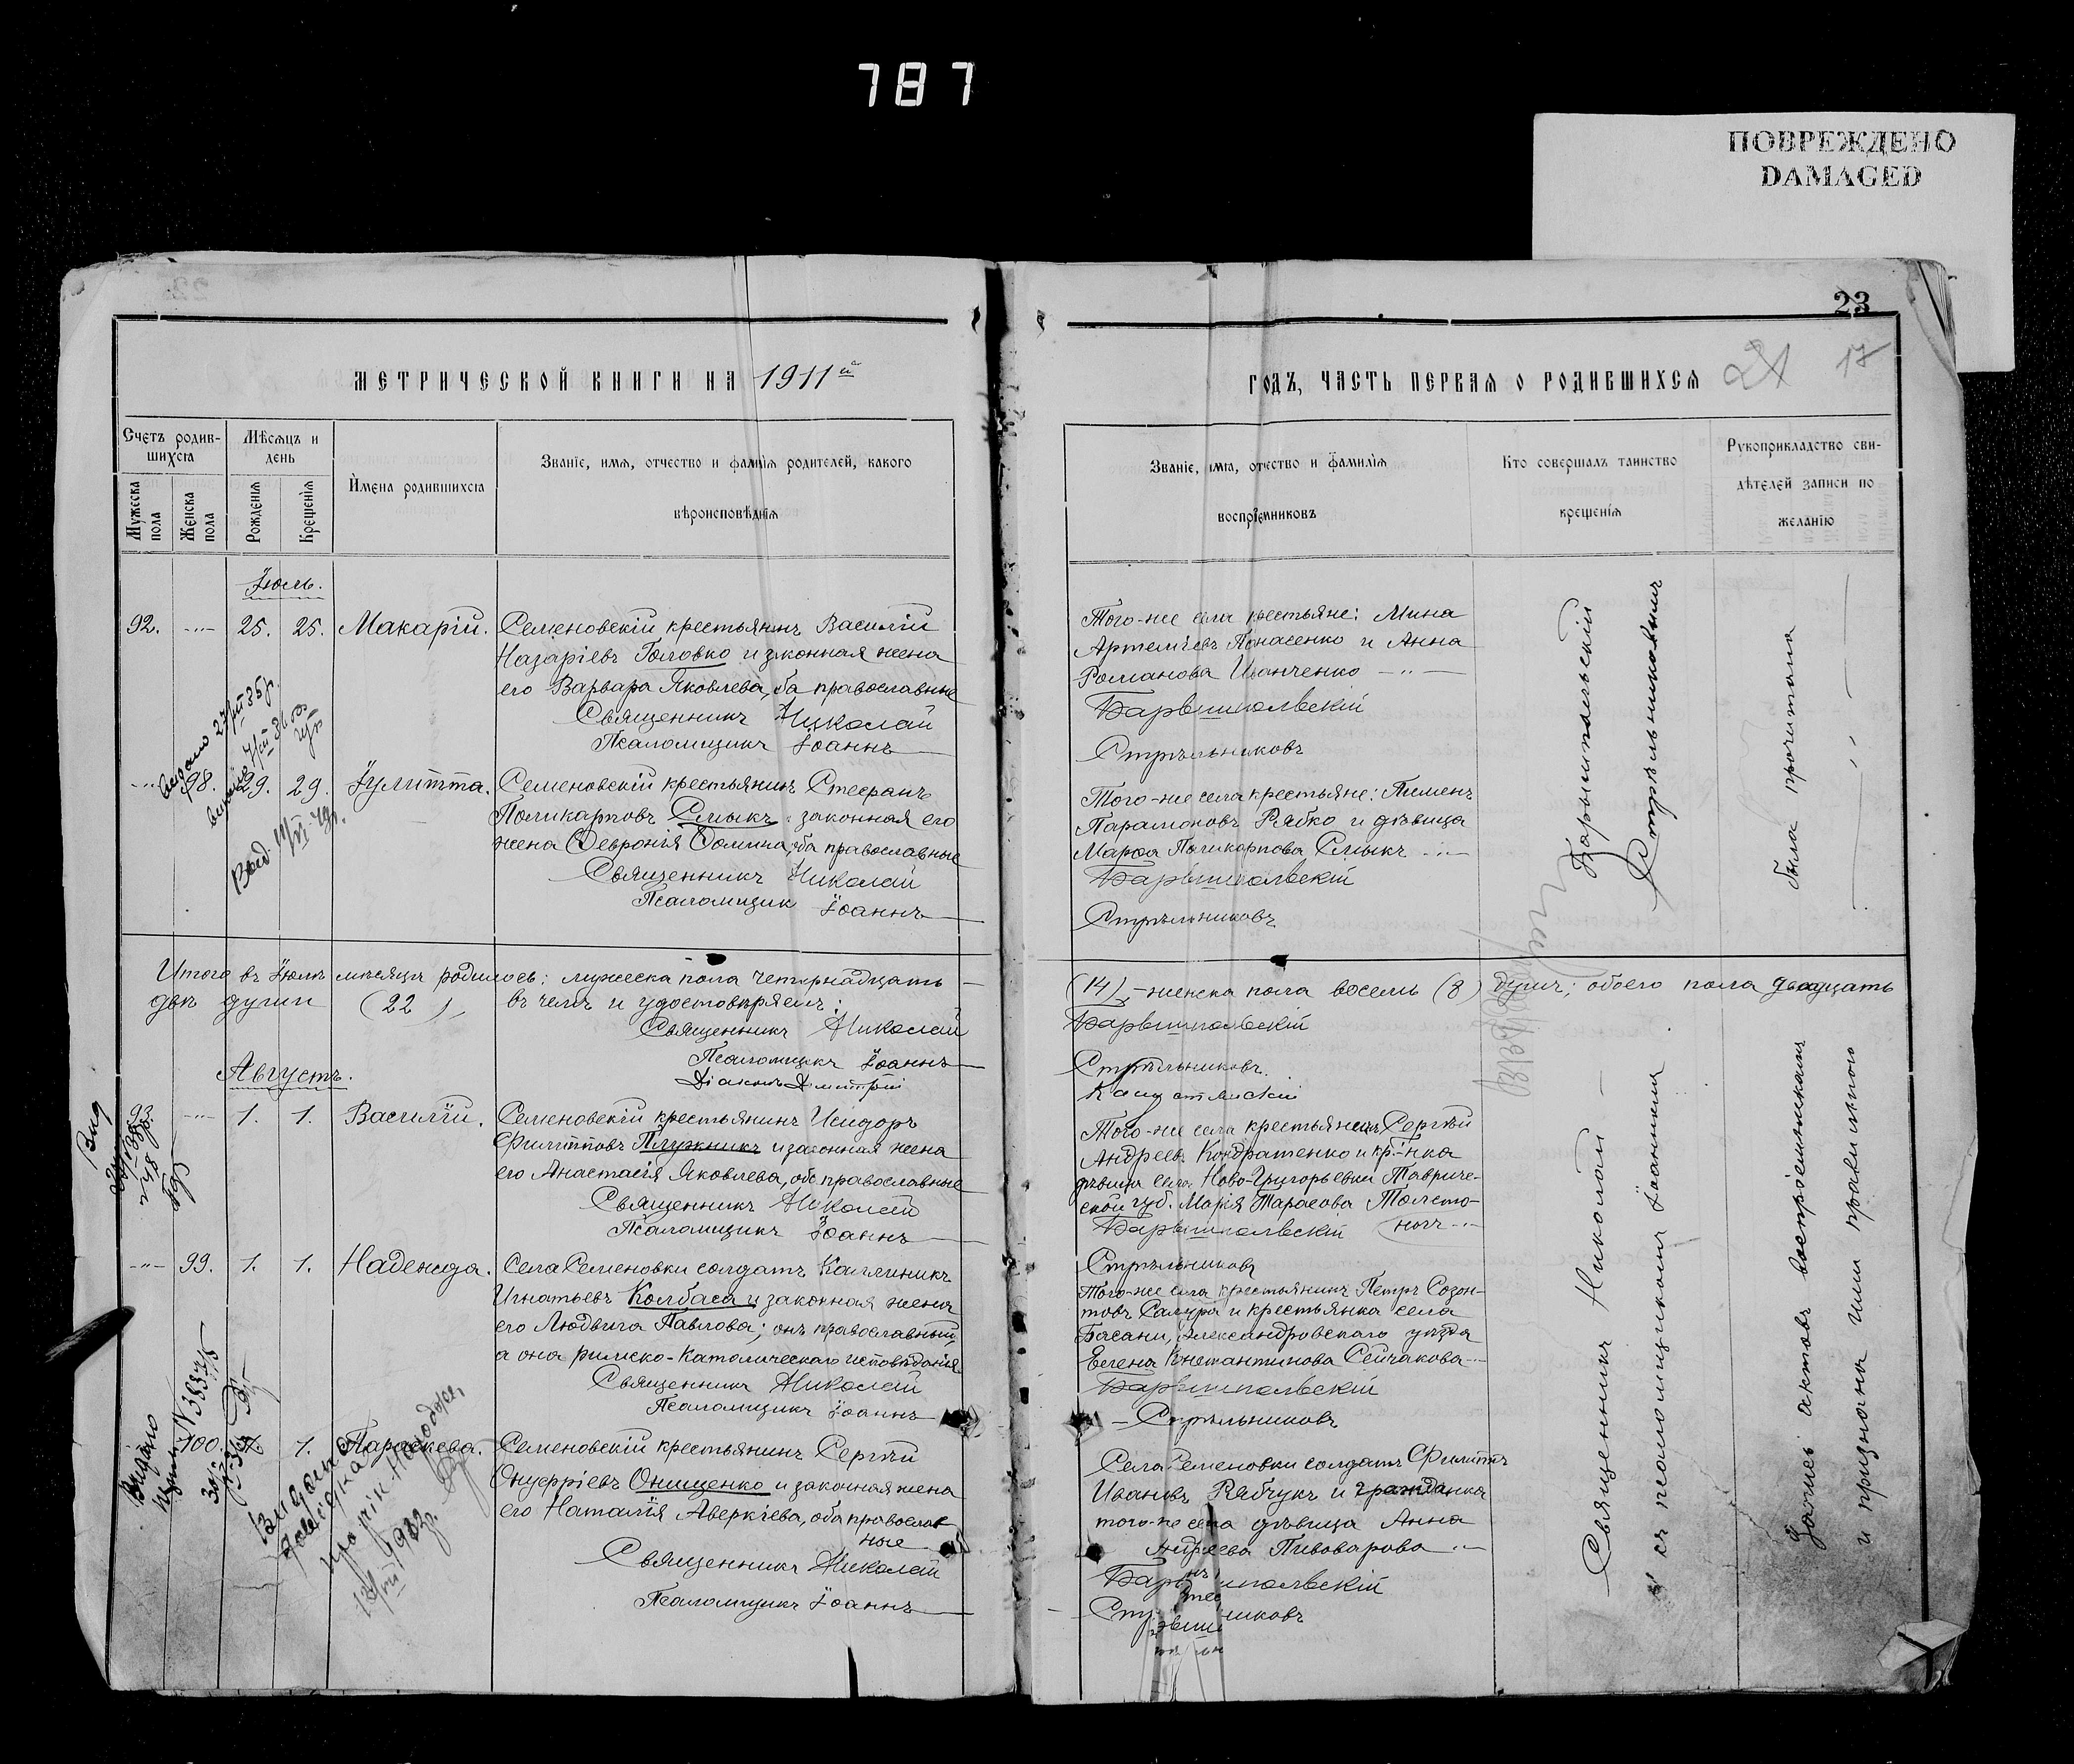 787
ПОВРЕЖДЕНО
DAMAGED
23
МЕТРИЧЕСКОЙ КНИГИ НА 1911й
ГОДЪ, ЧАСТЬ ПЕРВАЯ О РОДИВШИХСЯ
21 17
Счетъ родив-
шихся
Мужеска
пола
Женска
пола
Мѣсяцъ и
день
Рожденія
Крещенія
Имена родившихся
Званіе, имя, отчество и фамилія родителей, какого
вѣроисповѣднія
Званіе, имя, отчество и фамилія
воспріемниковъ
Кто совершалъ таинство
крещенія
Рукоприкладство сви-
дѣтелей записи по
желанію
Іюль.
92. -"- 25. 25. Макарій.
Семеновскій крестьянинъ Василій
Назаріевъ Головко и законная жена
его Варвара Яковлева, оба православные
Священникъ Николай
Псаломщикъ Іоаннъ
Того-же села крестьяне: Мина
Артеміевъ Понасенко и Анна
Романова Иванченко -"-
Барышпольскій
Стрѣльниковъ
-"- 98. 29. 29. Іулитта.
Семеновскій крестьянинъ Стефанъ
Поликарповъ Смыкъ и законная его
жена Февронія Фомина, оба православные
Священникъ Николай
Псаломщик Іоаннъ
Того-же села крестьяне: Пименъ
Парамоновъ Рябко и дѣвица
Марфа Поликарпова Смыкъ -"-
Барышпольскій
Стрѣльниковъ
Итого въ Іюлѣ мѣсяцѣ родилось: мужеска пола четырнадцать -
(14), - женска пола восемь (8) душъ; обоего пола двадцать
двѣ души (22), въ чемъ и удостовѣряемъ:
Священникъ Николай
Барышпольскій
Псаломщикъ Іоаннъ
Стрѣльниковъ.
Діаконъ Димитрій
Августъ.
93. -"- 1. 1. Василій.
Семеновскій крестьянинъ Исидоръ
Филипповъ Плужникъ и законная жена
его Анастасія Яковлева, оба православные
Священникъ Николай
Псаломщикъ Іоаннъ
Того-же села крестьянинъ Сергѣй
Андреевъ Кондратенко и кр-нка
дѣвица села Ново-Григорьевки Тавриче-
ской губ. Марія Тарасова Толсто-
ногъ -"-
Барышпольскій
Стрѣльниковъ
-"- 99. 1. 1. Надежда.
Села Семеновки солдатъ Каллиникъ
Игнатьевъ Колбаса и законная жена
его Людвига Павлова; онъ православный,
а она римско-католическаго исповѣданія
Священникъ Николай
Псаломщикъ Іоаннъ
Того-же села крестьянинъ Петръ Созон-
товъ Самура и крестьянка села
Басани, Александровскаго уѣзда
Евгена Константинова Сейчакова -"-
Барышпольскій
Стрѣльниковъ
100. 1. Параскева.
Семеновскій крестьянинъ Сергѣй
Онуфріевъ Онищенко и законная жена
его Наталія Аверкіева, оба православ
ные
Священникъ Николай
Псаломщикъ Іоаннъ
Села Семеновки солдатъ Филиппъ
Ивановъ Рябчукъ и гражданка
того-же села дѣвица Анна
Андреева Пивоварова -"-
Священникъ Николай Барышпольскій
съ псаломщикомъ Іоанномъ Стрѣльниковымъ
Запись актовъ воспріемниками была прочитана
и признана ими правильною
Видано